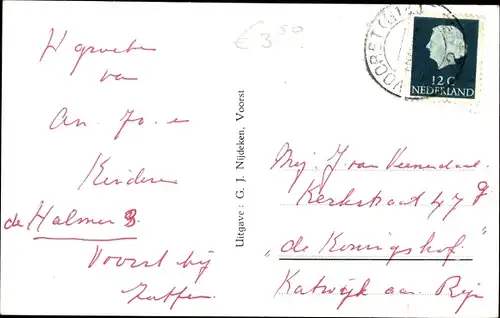 H groeten
van
An. Jo. en
Kinderen
de Halmen 3.
Voorst bij
Zutphen.
€ 3,50
Uitgave: G. J. Nijdeken, Voorst
VOORST (GLD)
12 C
NEDERLAND
Mej. J. van Veenendaal.
Kerkstraat 47 g
"de Koningshof."
Katwijk aan Rijn